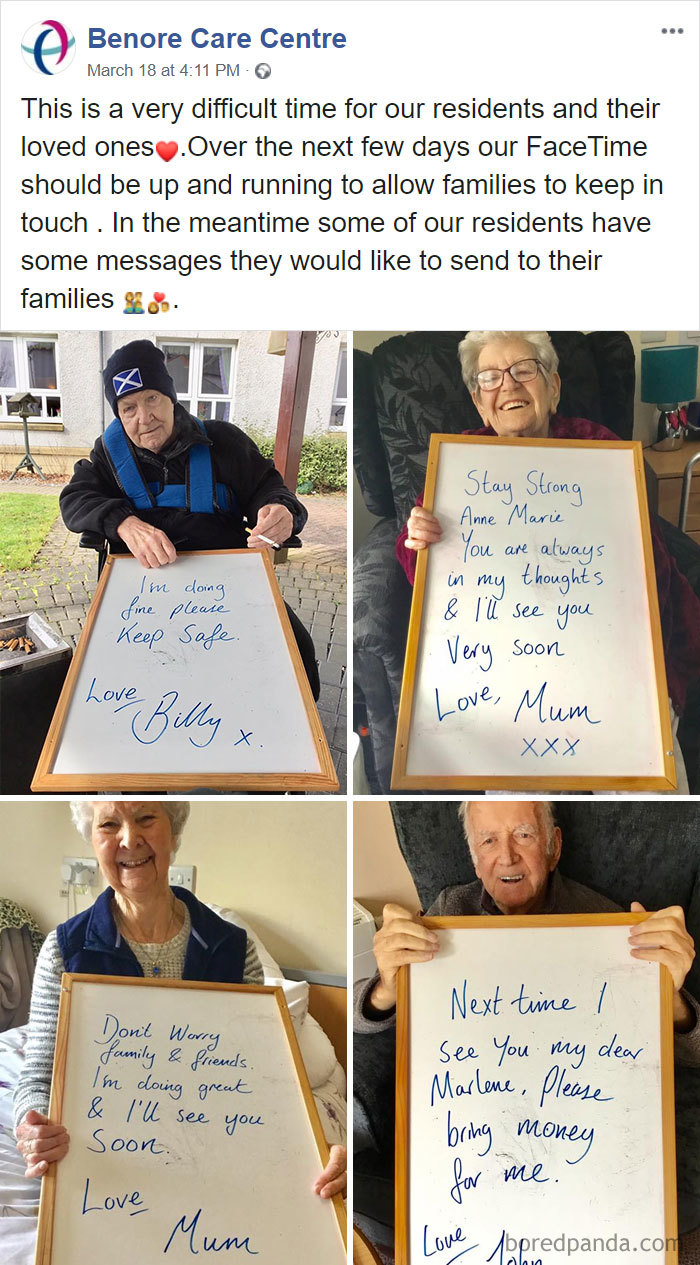 Benore Care Centre
March 18 at 4:11 PM ·
This is a very difficult time for our residents and their
loved ones❤️.Over the next few days our FaceTime
should be up and running to allow families to keep in
touch . In the meantime some of our residents have
some messages they would like to send to their
families 👭💏.
I'm doing
fine please
Keep Safe.
Love
Billy x.
Stay Strong
Anne Marie
You are always
in my thoughts
& I'll see you
Very soon
Love, Mum
XXX
Don't Worry
family & friends.
I'm doing great
& I'll see you
Soon.
Love
Mum
Next time I
see You my dear
Marlene, Please
bring money
for me.
Love
John
boredpanda.com